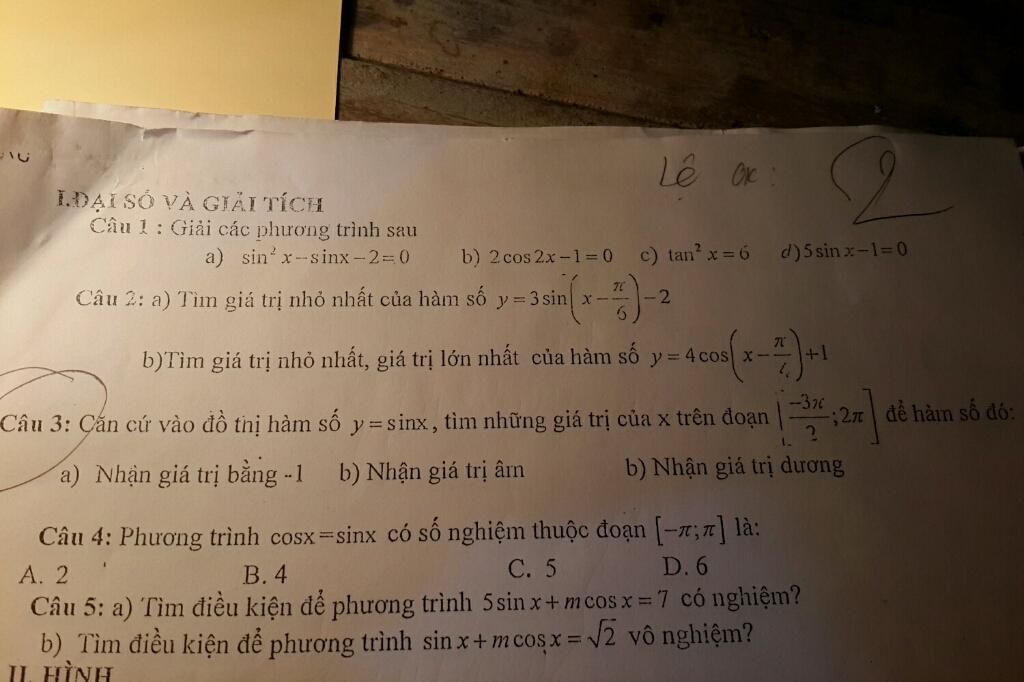 Lê ox: 2
I.ĐẠI SỐ VÀ GIẢI TÍCH
Câu 1 : Giải các phương trình sau
a) sin² x−sinx−2=0 b) 2cos2x−1=0 c) tan² x=6 d)5sinx−1=0
Câu 2: a) Tìm giá trị nhỏ nhất của hàm số y=3sin(x−π/6)−2
b)Tìm giá trị nhỏ nhất, giá trị lớn nhất của hàm số y=4cos(x−π/)+1
Câu 3: Căn cứ vào đồ thị hàm số y=sinx, tìm những giá trị của x trên đoạn [−3π/2;2π] để hàm số đó:
a) Nhận giá trị bằng -1 b) Nhận giá trị âm b) Nhận giá trị dương
Câu 4: Phương trình cosx=sinx có số nghiệm thuộc đoạn [−π;π] là:
A. 2 B. 4 C. 5 D. 6
Câu 5: a) Tìm điều kiện để phương trình 5sinx+mcosx=7 có nghiệm?
b) Tìm điều kiện để phương trình sinx+mcosx=√2 vô nghiệm?
II. HÌNH